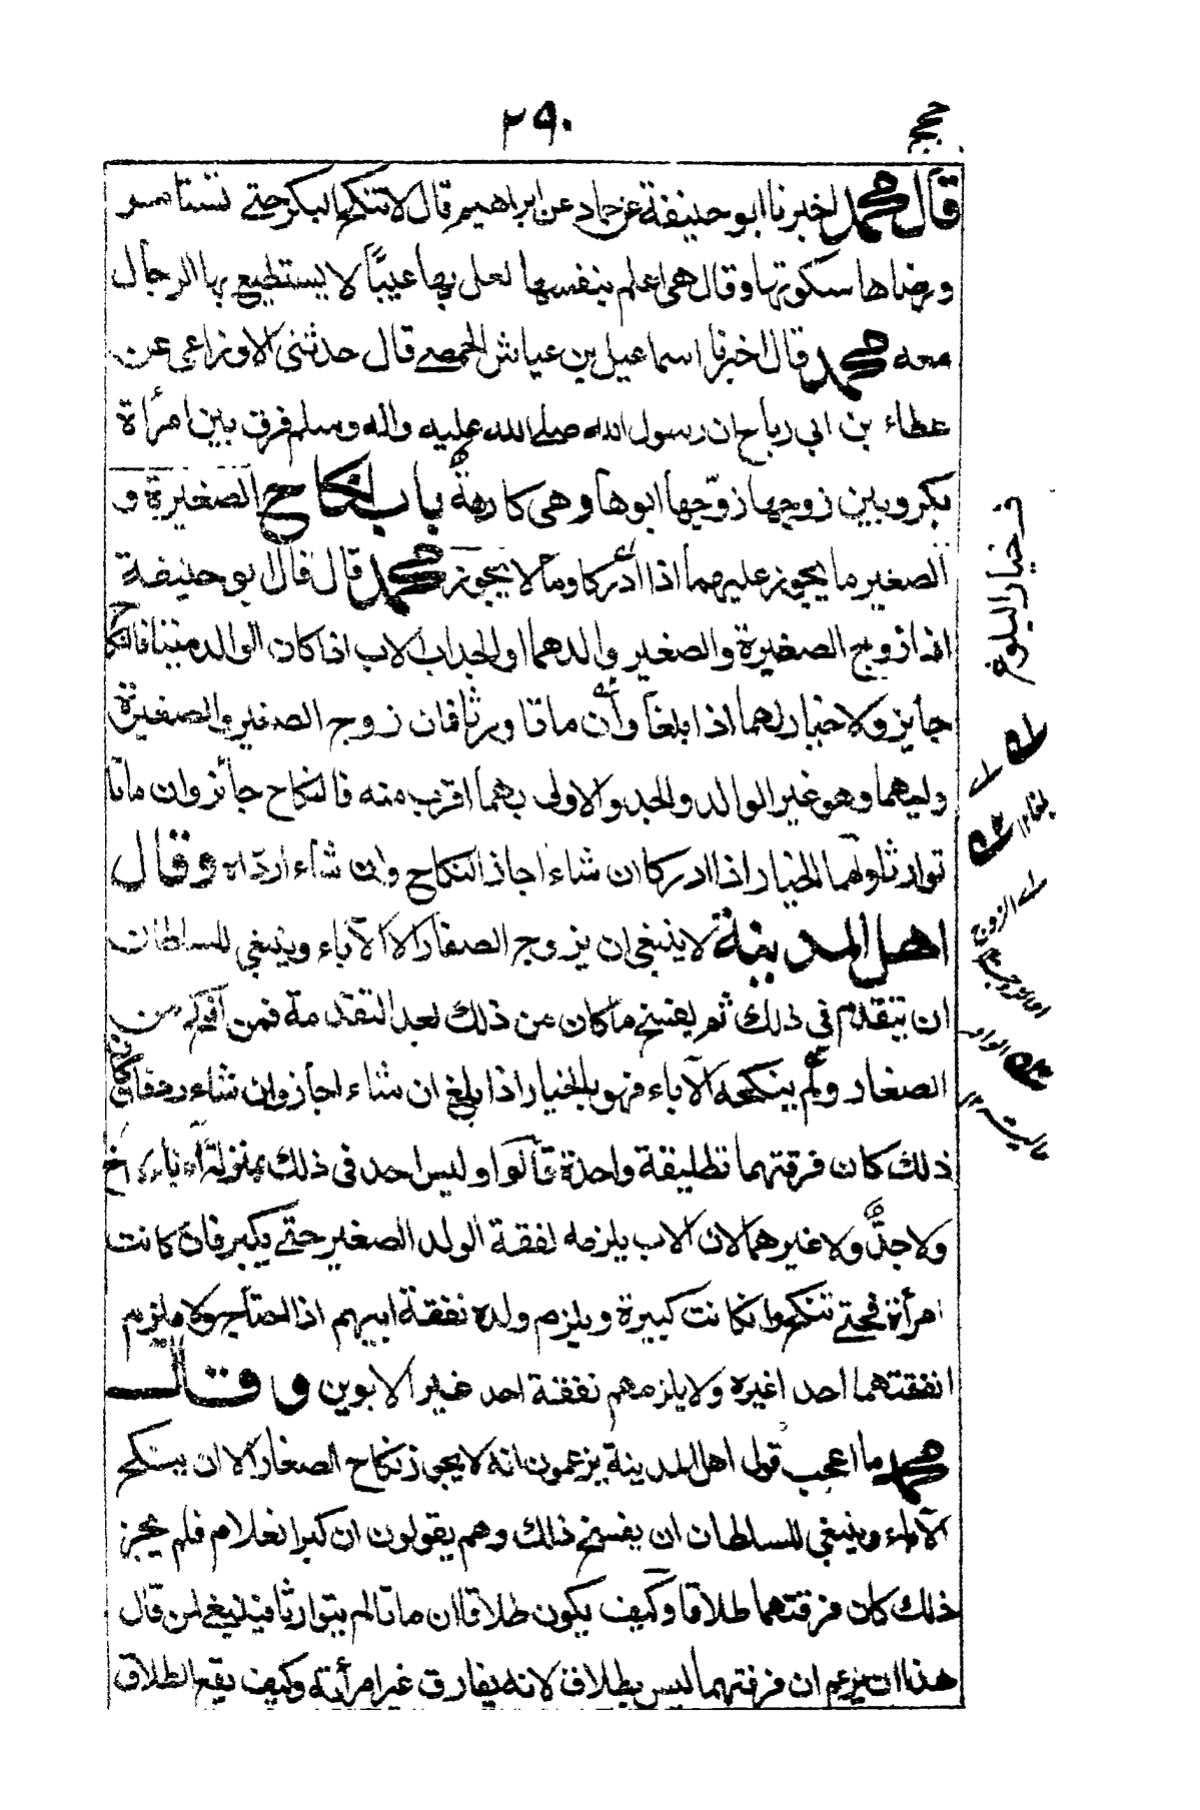 ٢٩٠
قال محمد اخبرنا ابو حنيفة عن حماد عن ابراهيم قال لا تنكح البكر حتى تستامر
ورضاها سكوتها وقال هى اعلم بنفسها لعل بها عيبًا لا يستطيع بها الرجال
معه محمد قال اخبرنا اسماعيل بن عياش الحمصى قال حدثنى الاوزاعى عن
عطاء بن ابى رباح ان رسول الله صلى الله عليه واله وسلم فرق بين امرأة
بكر وبين زوجها زوّجها ابوها وهى كارهة باب انكاح الصغيرة و
الصغير ما يجوز عليهما اذا ادركا وما لا يجوز محمد قال قال ابو حنيفة
اذا زوج الصغيرة والصغير والدهما او الجد اب الاب اذا كان الوالد ميتا فالنكاح
جايز ولا خيار لهما اذا بلغا وان ماتا ورثا فان زوج الصغير والصغيرة
وليهما وهو غير الوالد والجد والاولى بهما اقرب منه فالنكاح جائز وان ماتا
توارثا ولهما الخيار اذا ادركا ان شاء اجاز النكاح وان شاء ارداه وقال
اهل المدينة لا ينبغى ان يزوج الصغار الا الآباء وينبغى للسلطان
ان يتقدم فى ذلك ثم يفسخ ما كان من ذلك بعد التقدمة فمن من
الصغار ولم ينكحه الآباء فهو بالخيار اذا بلغ ان شاء اجاز وان شاء رد فان كان
ذلك كان فرقتهما تطليقة واحدة قالوا وليس احد فى ذلك بمنزلة الآباء اخ
ولا جدٌّ ولا غيرهما لان الاب يلزمه نفقة الولد الصغير حتى يكبر فان كانت
امرأة فحتى تنكح وان كانت كبيرة ويلزم ولده نفقة ابيهم اذا احتاج ولا يلزم
نفقتهما احد اغيره ولا يلزمهم نفقة احد غير الابوين وقال
محمد ما اعجب قول اهل المدينة يزعمون انه لا يجوز نكاح الصغار الا ان ينكح
الآباء وينبغى للسلطان ان يفسخ ذلك وهم يقولون ان كبر الغلام فلم يجز
ذلك كان فرقتهما طلاقا وكيف يكون طلاقا ان ماتا لم يتوارثا فينبغى لمن قال
هذا ان يزعم ان فرقتهما ليس بطلاق لانه يفارق غير امرأته وكيف يقع الطلاق
خيار البلوغ